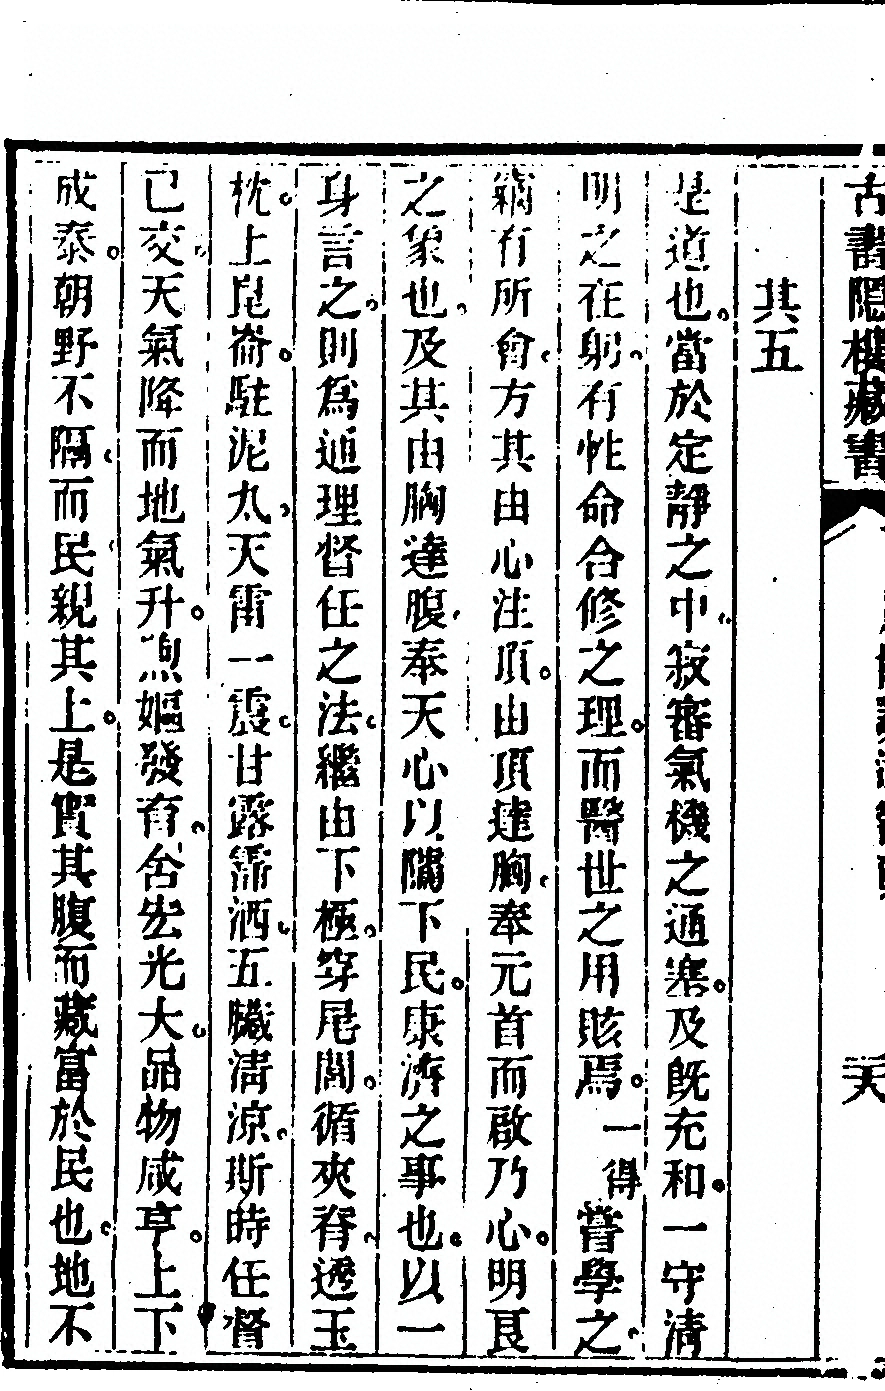 古書隱樓藏書
其五
是道也。當於定靜之中。寂審氣機之通塞。及旣充和。一守清
明之在躬。有性命合修之理。而醫世之用賅焉。一得嘗學之。
竊有所會。方其由心注頂。由頂達胸。奉元首而啟乃心。明良
之象也。及其由胸達腹。奉天心以隲下民。康濟之事也。以一
身言之。則爲通理督任之法。繼由下極。穿尾閭。循夾脊。透玉
枕。上崑崙。駐泥丸。天雷一震。甘露霈洒。五臟清涼。斯時任督
已交。天氣降而地氣升。煦嫗發育。含宏光大。品物咸亨。上下
成泰。朝野不隔。而民親其上。是實其腹而藏富於民也。地不